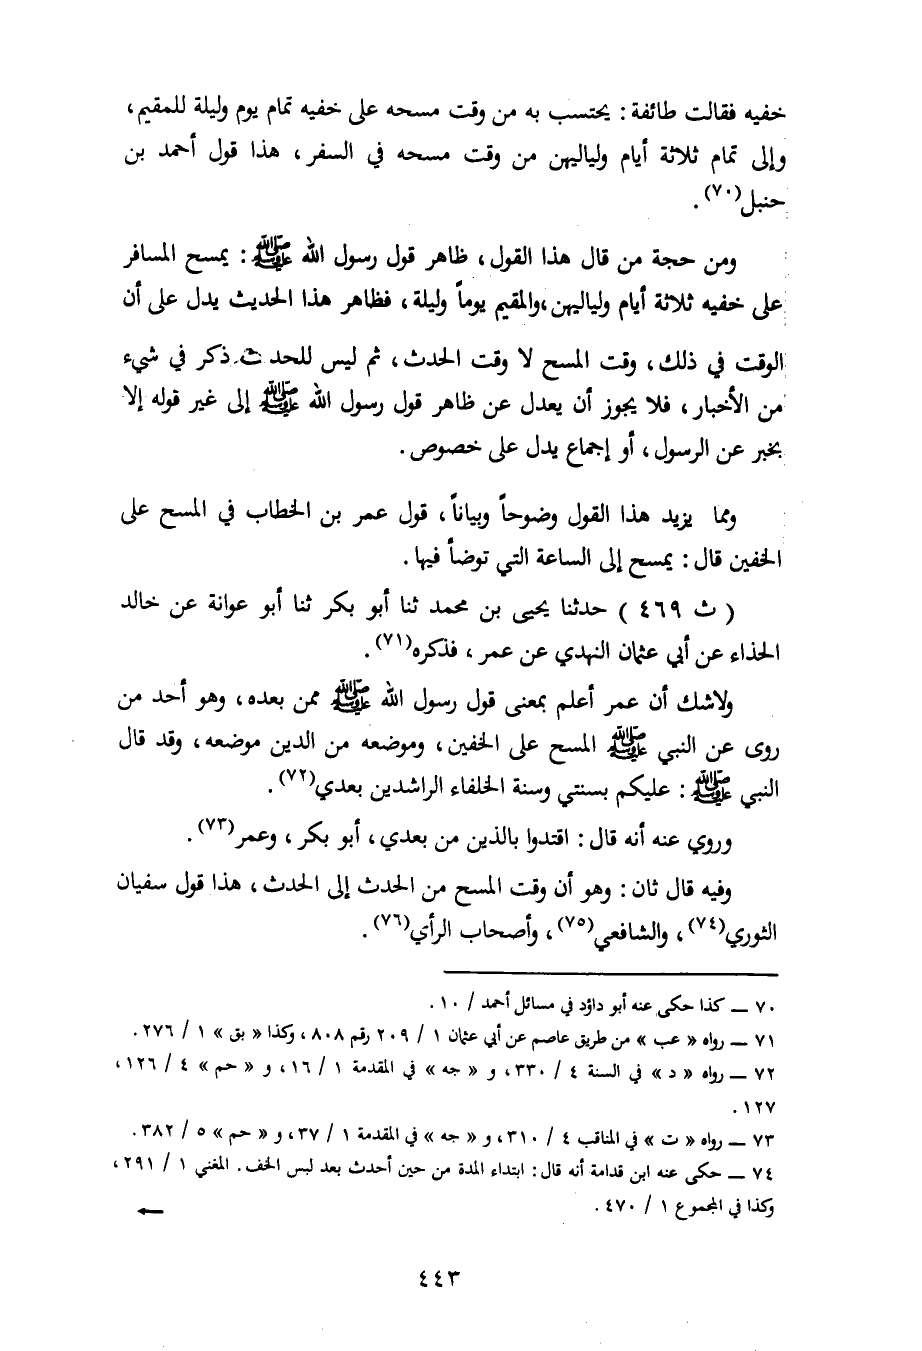 خفيه فقالت طائفة : يحتسب به من وقت مسحه على خفيه تمام يوم وليلة للمقيم ،
وإلى تمام ثلاثة أيام ولياليهن من وقت مسحه في السفر ، هذا قول أحمد بن
حنبل(٧٠) .
ومن حجة من قال هذا القول ، ظاهر قول رسول الله ﷺ : يمسح المسافر
على خفيه ثلاثة أيام ولياليهن ،والمقيم يوماً وليلة ، فظاهر هذا الحديث يدل على أن
الوقت في ذلك ، وقت المسح لا وقت الحدث ، ثم ليس للحدث ذكر في شيء
من الأخبار ، فلا يجوز أن يعدل عن ظاهر قول رسول الله ﷺ إلى غير قوله إلا
بخبر عن الرسول ، أو إجماع يدل على خصوص .
ومما يزيد هذا القول وضوحاً وبياناً ، قول عمر بن الخطاب في المسح على
الخفين قال : يمسح إلى الساعة التي توضأ فيها .
( ث ٤٦٩ ) حدثنا يحيى بن محمد ثنا أبو بكر ثنا أبو عوانة عن خالد
الحذاء عن أبي عثمان النهدي عن عمر ، فذكره(٧١) .
ولاشك أن عمر أعلم بمعنى قول رسول الله ﷺ ممن بعده ، وهو أحد من
روى عن النبي ﷺ المسح على الخفين ، وموضعه من الدين موضعه ، وقد قال
النبي ﷺ : عليكم بسنتي وسنة الخلفاء الراشدين بعدي(٧٢) .
وروي عنه أنه قال : اقتدوا بالذين من بعدي ، أبو بكر ، وعمر(٧٣) .
وفيه قال ثان : وهو أن وقت المسح من الحدث إلى الحدث ، هذا قول سفيان
الثوري(٧٤) ، والشافعي(٧٥) ، وأصحاب الرأي(٧٦) .
٧٠ ــ كذا حكى عنه أبو داؤد في مسائل أحمد / ١٠ .
٧١ ــ رواه « عب » من طريق عاصم عن أبي عثمان ١ / ٢٠٩ رقم ٨٠٨ ، وكذا « بق » ١ / ٢٧٦ .
٧٢ ــ رواه « د » في السنة ٤ / ٣٣٠ ، و « جه » في المقدمة ١ / ١٦ ، و « حم » ٤ / ١٢٦ ،
١٢٧ .
٧٣ ــ رواه « ت » في المناقب ٤ / ٣١٠ ، و « جه » في المقدمة ١ / ٣٧ ، و « حم » ٥ / ٣٨٢ .
٧٤ ــ حكى عنه ابن قدامة أنه قال : ابتداء المدة من حين أحدث بعد لبس الخف . المغني ١ / ٢٩١ ،
وكذا في المجموع ١ / ٤٧٠ . ←
٤٤٣